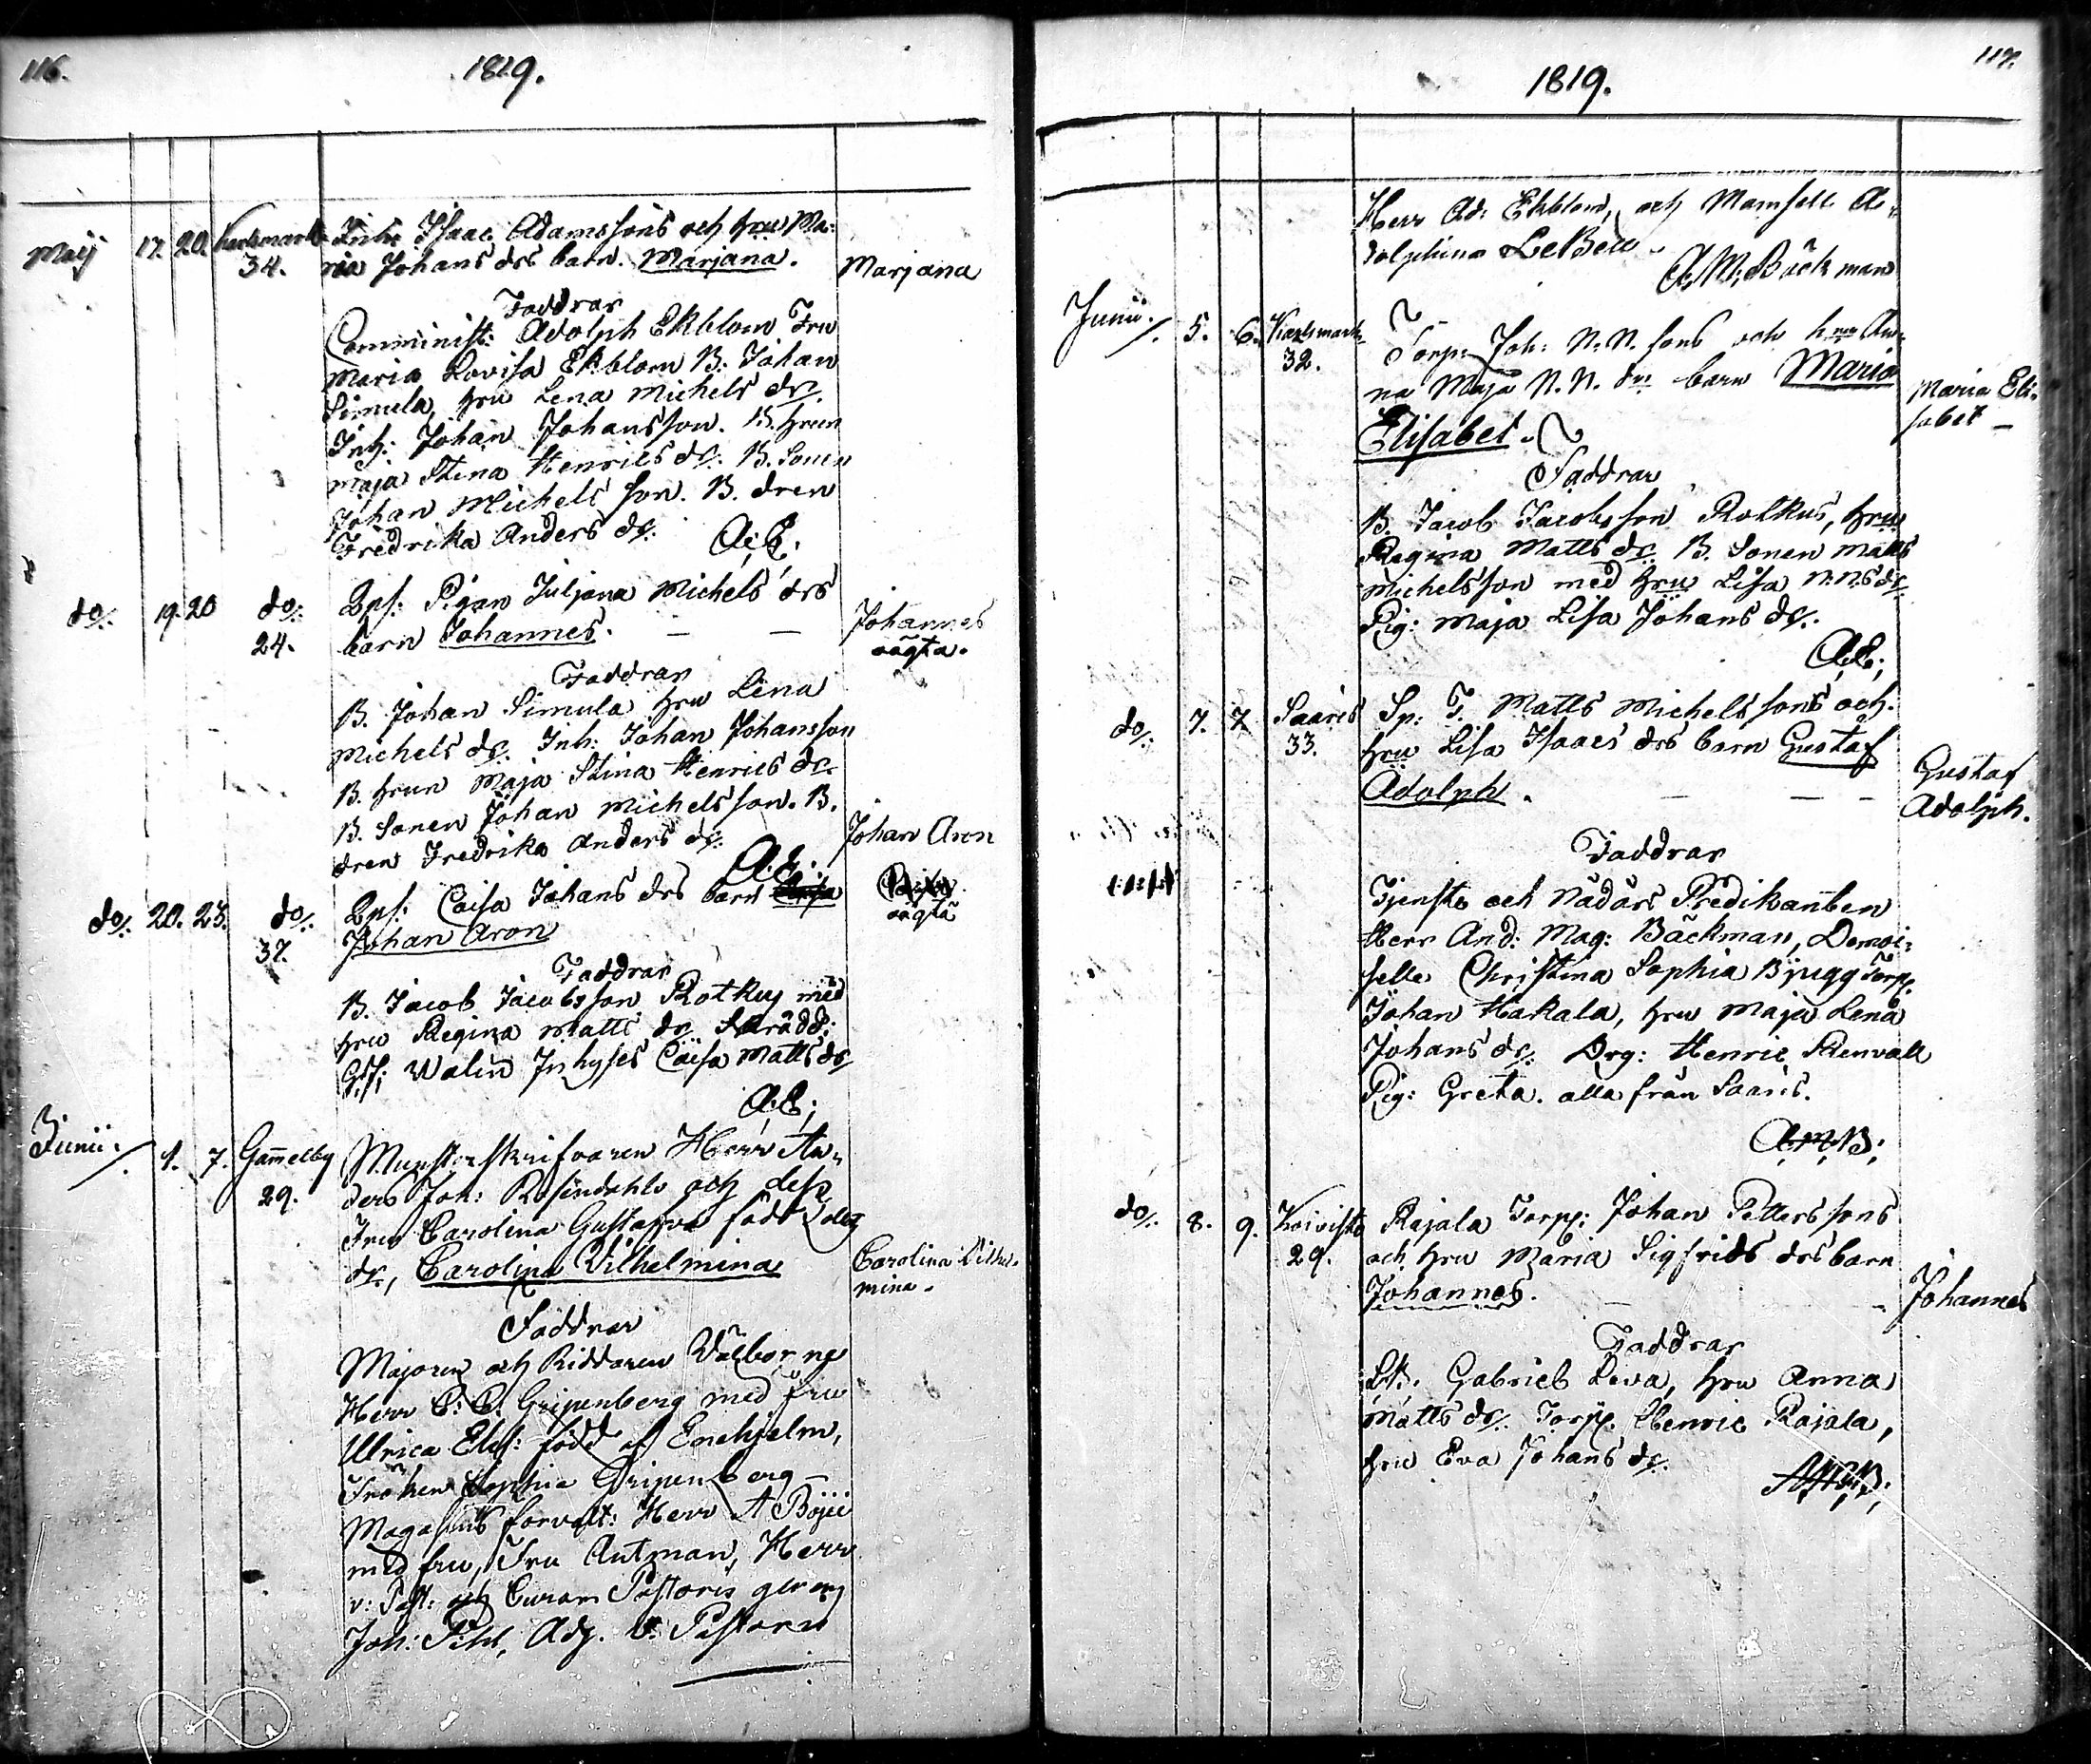 116.
1819.
Maij 17. 20. Karlsmark Inh: Isaac Adamssons och hru Ma-
34. ria Johans drs barn. Marjana. Marjana
Faddrar
Comminist: Adolph Ekblom Fru
Maria Lovisa Ekblom B. Johan
Simula, hru Lena Michels dr.
Inh: Johan Johansson. B. hrun
Maja Stina Henrics dr. B. Sonen
Johan Michelsson. B. dren
Fredrika Anders dr. A: E:
do/. 19. 20 do/. Qps: Pigan Juljana Michels drs
24. barn Johannes. Johannes
oägta.
Faddrar
B. Johan Simula hru Lena
Michels dr. Inh: Johan Johansson
B. hrun Maja Stina Henrics dr.
B. Sonen Johan Michelsson. B.
dren Fredrika Anders dr. A: E:
do/. 20. 23. do/. Qps: Caisa Johans drs barn
37. Johan Aron Johan Aron
oägta
Faddrar
B. Jacob Jacobsson Rotkus med
hru Regina Matts dr
Walin Inhyses Caisa Matts dr
A: E:
Junii. 1. 7. Gam̄elby Munsterskrifvaren Herr An-
29. ders Joh: Rosendahls och dess
Fru Carolina Gustafva född
dr, Carolina Vilhelmina Carolina Vilhel-
mina.
Faddrar
Majoren och Riddaren Välborne
Herr C: C: Gripenberg med fru
Ulrica Elis: född af Enehjelm,
Fröken Sophie Gripenberg
Magasins forvalt: Herr A Böjie
med fru, Fru Antman, Herr
v: Past: och Curam Pastoris gerens
Joh: Pihl, Adj. V. Pastorn
117.
1819.
Herr Ad: Ekblom, och Mamsell A-
dolphina LeBell.
A, M, Bäckman
Junii. 5. 6. Karlsmark Torp: Joh: N. N. sons och hrus An-
32. na Maja N. N. drs barn Maria
Elisabet. Maria Eli-
sabet
Faddrar
B. Jacob Jacobsson Rotkus, hru
Regina Matts dr. B. Sonen Matts
Michelsson med hru Lisa N. N:s dr.
Pig: Maja Lisa Johans dr.
A: E:
do/. 7. 7 Saaris Sp: T. Matts Michelssons och
33. hru Lisa Isaacs drs barn Gustaf
Adolph. Gustaf
Adolph.
Faddrar
Tjenste och Nådårs Predikanten
Herr And: Mag: Bäckman, Demoi-
selle Christina Sophia Bjugg Torp:
Johan Hakala, hru Maja Lena
Johans dr. Drg: Henric Renvall
Pig: Greta. alla från Saaris.
A: M: B:
do/. 8. 9. Koivisto Rajala Torp: Johan Petterssons
29. och hru Maria Sigfrids drs barn
Johannes. Johannes
Faddrar
Gabriel Leva, hru Anna
Matts dr. Torp: Henric Rajala,
hru Eva Johans dr.
A: M: B: